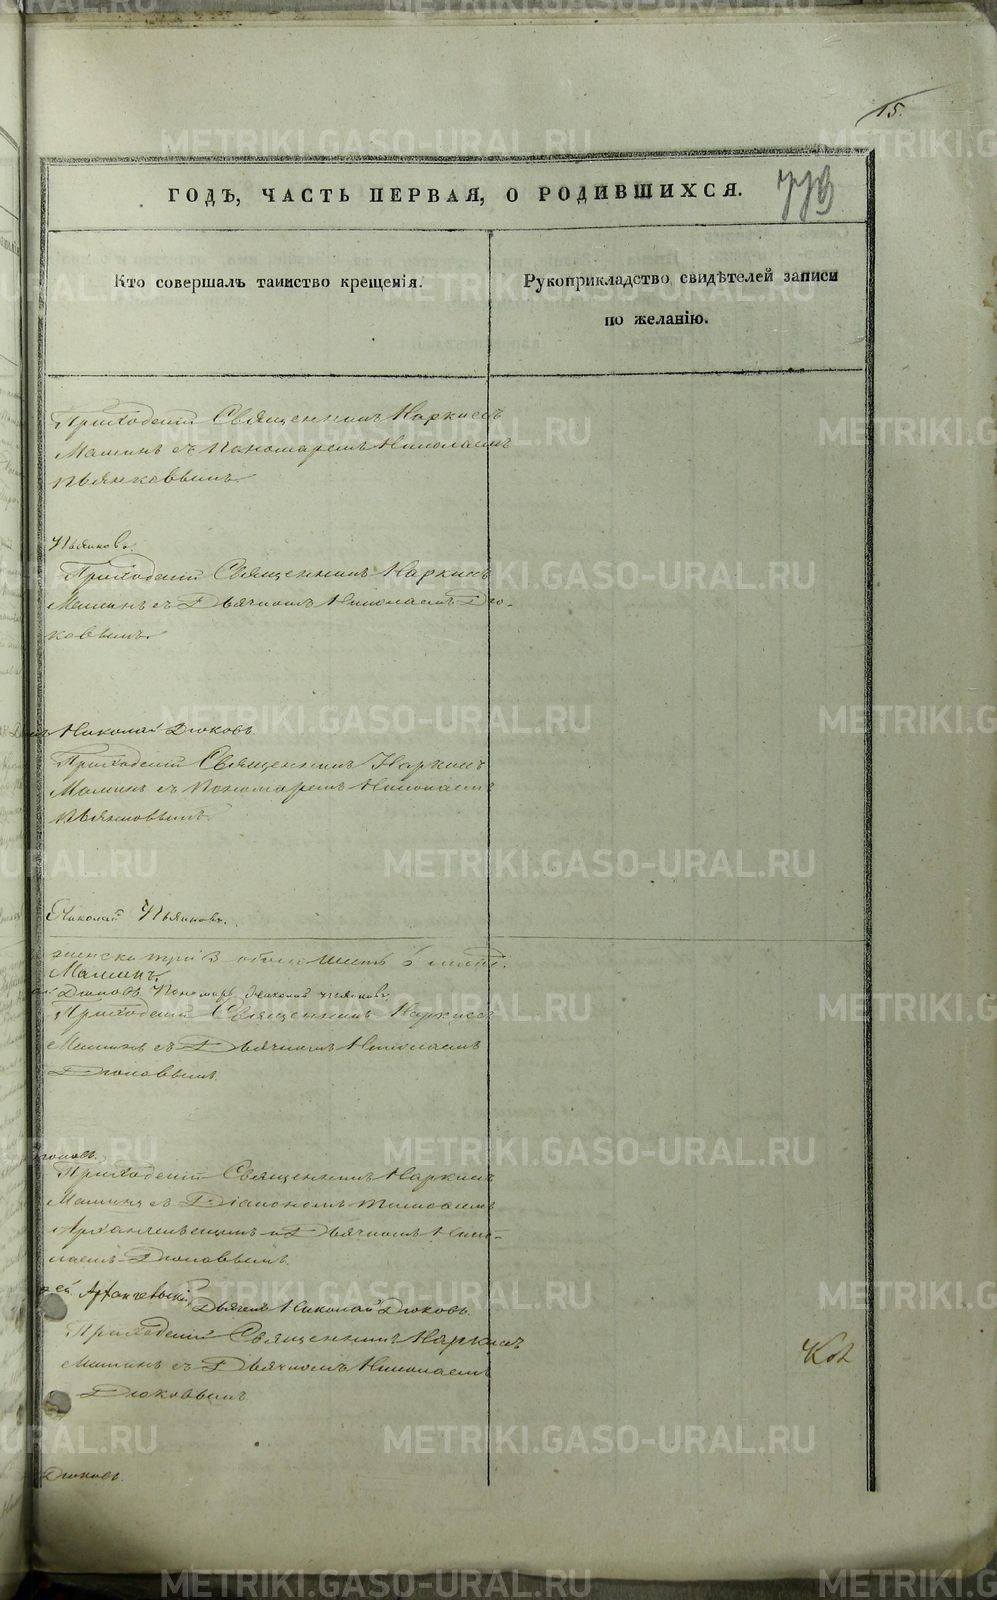 15.
773
ГОДЪ, ЧАСТЬ ПЕРВАЯ, О РОДИВШИХСЯ.
Кто совершалъ таинство крещенія.
Рукоприкладство свидѣтелей записи
по желанію.
Приходскій Священникъ Наркисъ
Маминъ съ Пономаремъ Николаемъ
Пьянковымъ.
Пьянковъ.
Приходскій Священникъ Наркисъ
Маминъ съ Дьячкомъ Николаемъ Дю-
ковымъ.
Николай Дюковъ.
Приходскій Священникъ Наркисъ
Маминъ съ Пономаремъ Николаемъ
Пьянковымъ.
Николай Пьянковъ.
женска три 3 обоего шесть 6
Маминъ.
Дюковъ Пономарь Николай Пьянковъ.
Приходскій Священникъ Наркисъ
Маминъ съ Дьячкомъ Николаемъ
Дюковымъ.
Дюковъ.
Приходскій Священникъ Наркисъ
Маминъ съ Діакономъ
Архангельскимъ и Дьячкомъ Нико-
лаемъ Дюковымъ.
Архангельскій, Дьячекъ Николай Дюковъ.
Приходскій Священникъ Наркисъ
Маминъ съ Дьячкомъ Николаемъ
Дюковымъ
Дюковъ.
METRIKI.GASO-URAL.RU